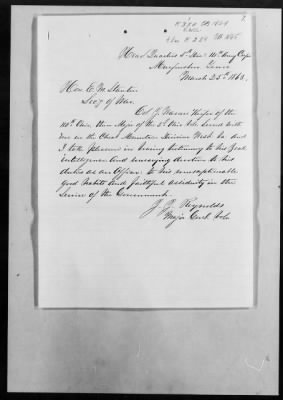 7.
K 220 CB 1864
Head Quarters 5th Div: 14th Army Corps
Murfreesboro Tenn
March 25th 1863.
Hon E. M. Stanton
Secy of War.
Col J. Warren Keifer of the
110th Ohio, then Major of the 3d Ohio Vols. served with
me in the Cheat Mountain Division West Va. and
I take pleasure in bearing testimony to his zeal
intelligence and unvarying devotion to his
duties as an Officer, to his unexceptionable
good habits and faithful assiduity in the
Service of the Government.
J. J. Reynolds
Major Genl Vols.